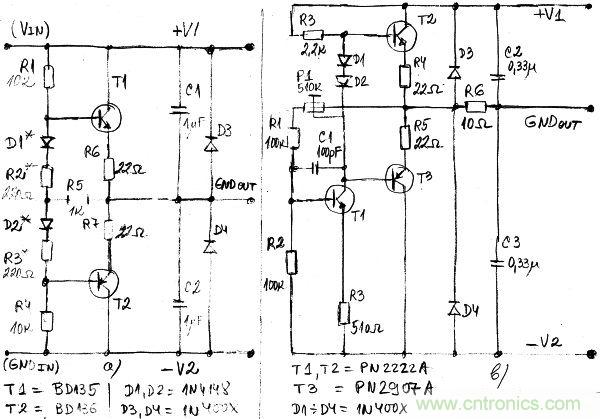 (VIN)
+V1
R1
1C2
T1
C1
1µF
D1*
R6
22Ω
D3
R2*
220Ω
R5
1K
GNDOUT
D2*
R7
22Ω
D4
R3*
220Ω
C2
1µF
T2
R4
10K
(GNDIN)
a)
-V2
T1 = BD135
D1,D2 = 1N4148
T2 = BD136
D3,D4 = 1N400X
+V1
R3
2,2K
T2
D1
D2
R4
22Ω
D3
C2
0,33µ
P1
510K
R6
10Ω
GNDOUT
R1
100K
C1
100pF
R5
22Ω
T3
T1
R2
100K
R3
510Ω
D4
C3
0,33µ
-V2
в)
T1, T2 = PN2222A
T3 = PN2907A
D1÷D4 = 1N400X
www.cntronics.com